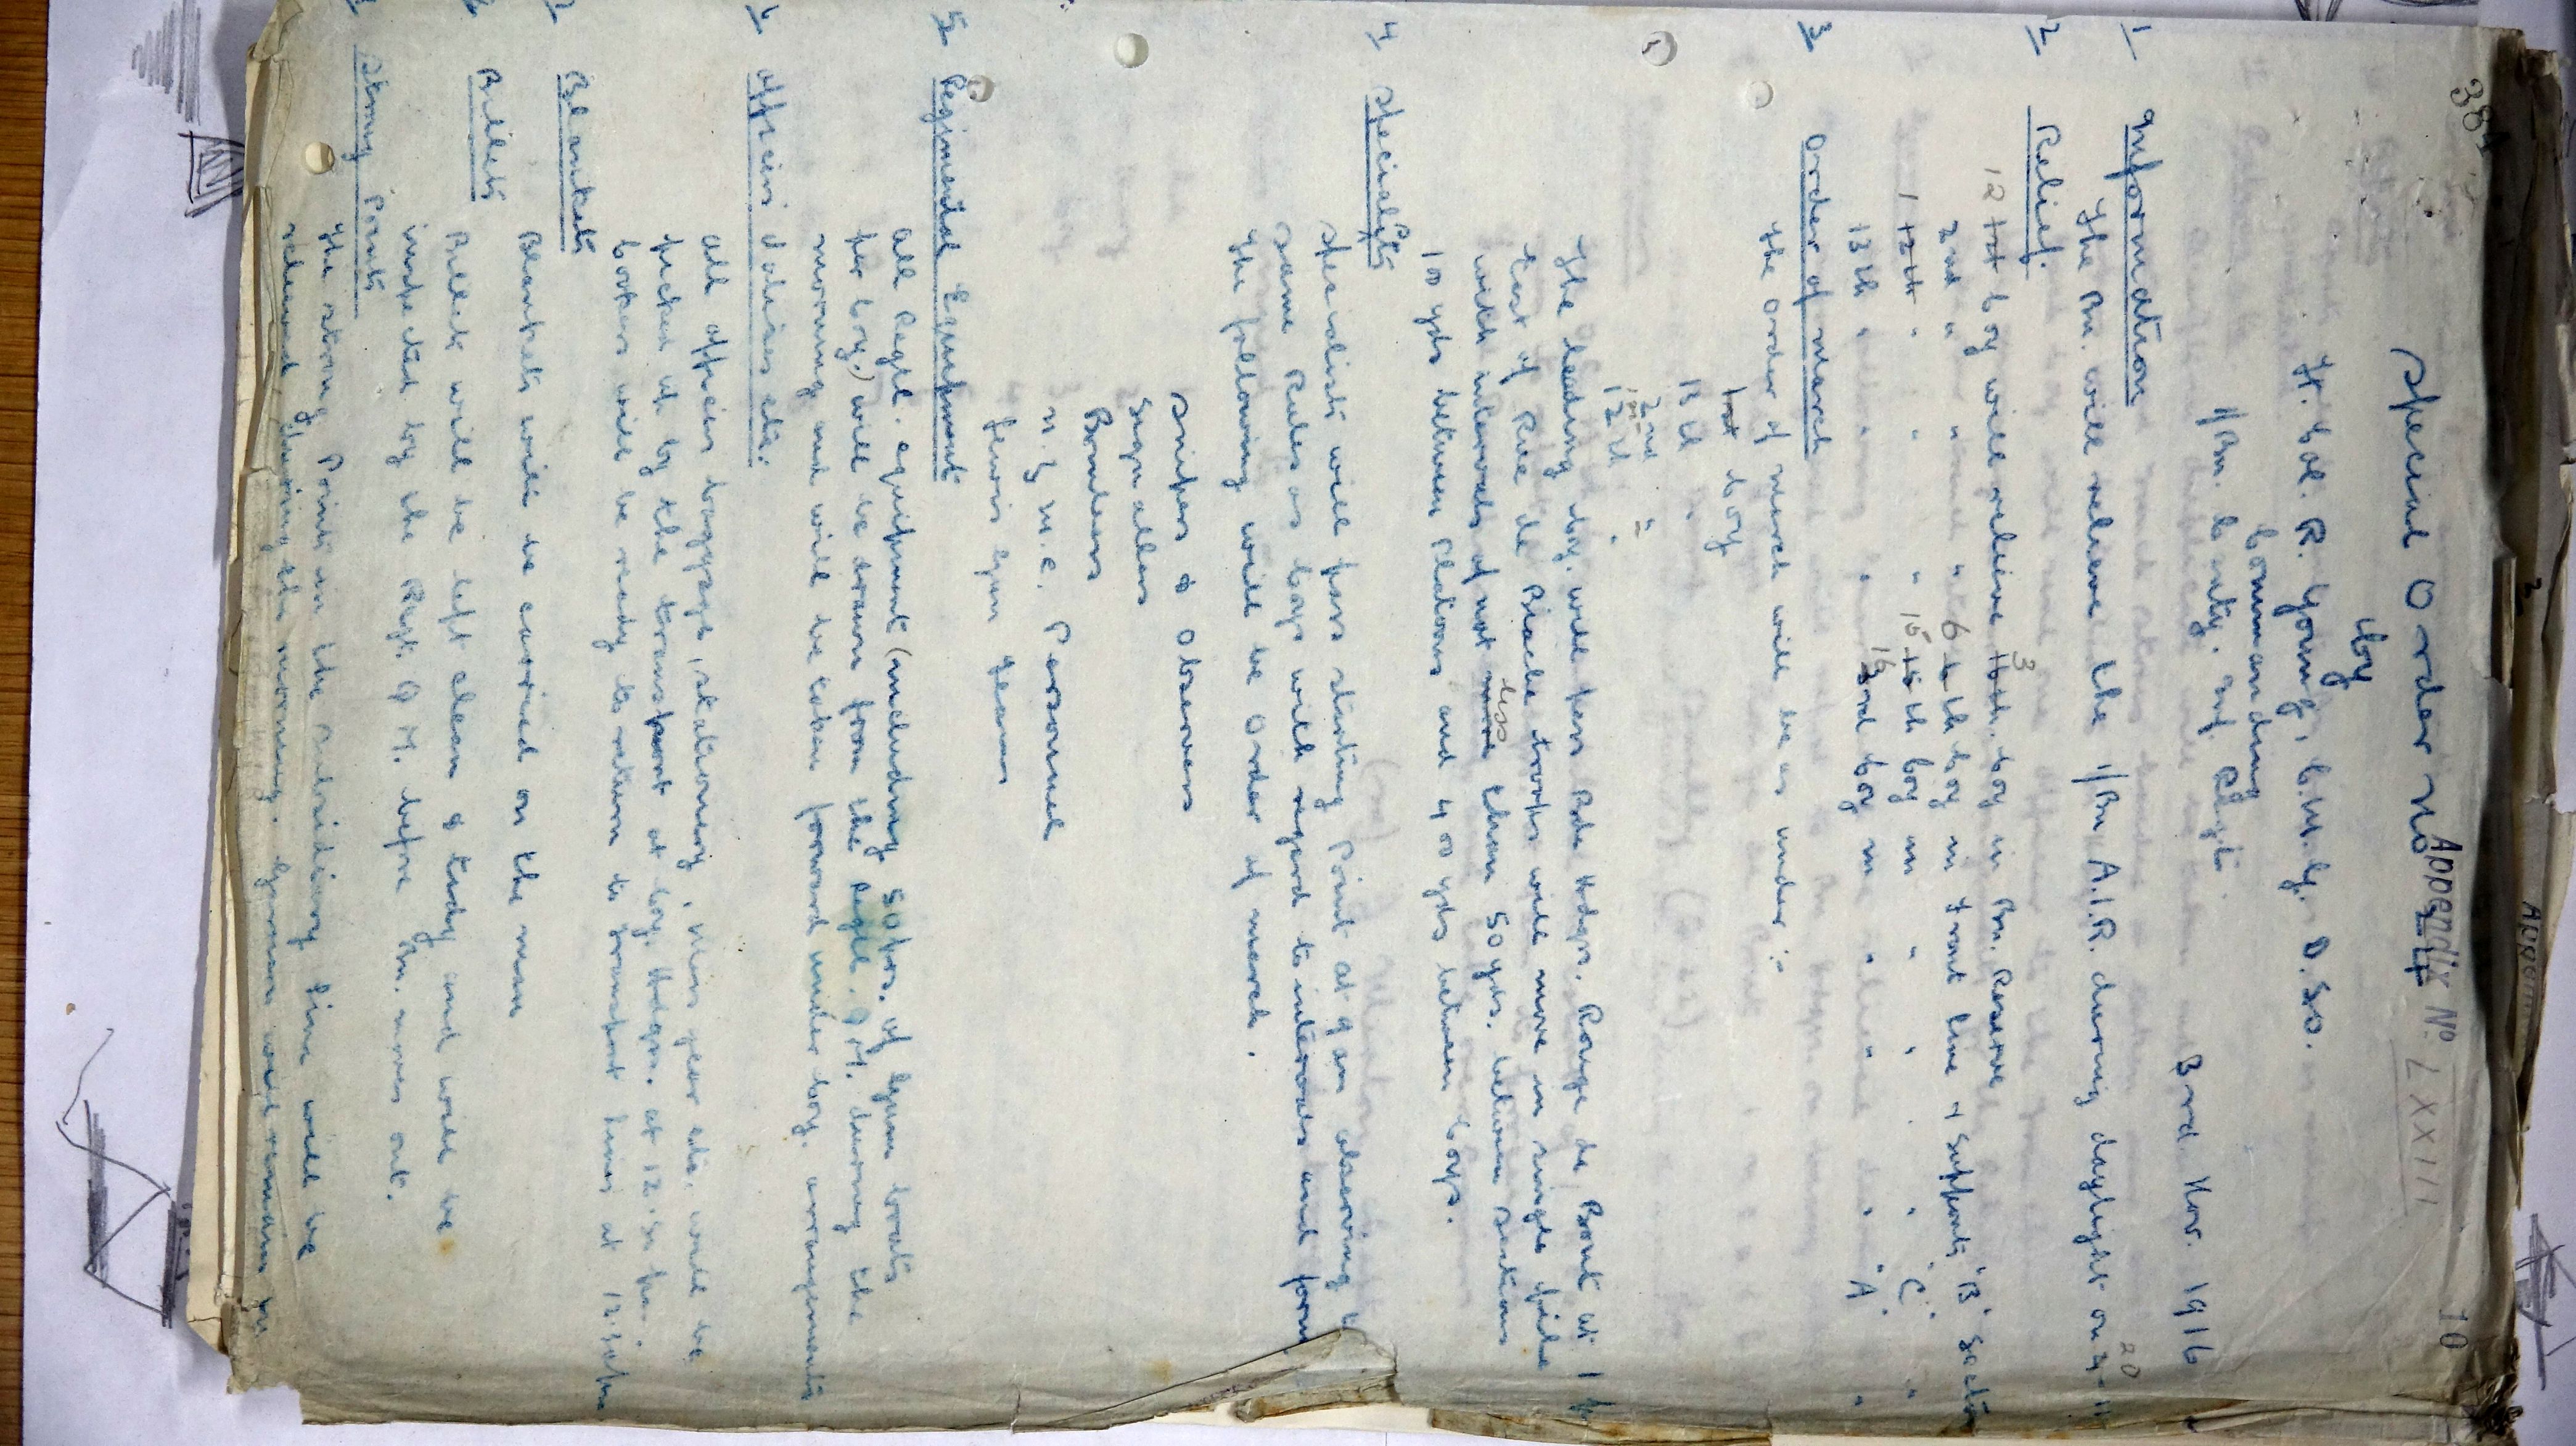 38
Appendix No LXXIII
10
Special Order No 24
by
Lt. Col. R. Young, C.M.G. D.S.O.
Commanding
1/Bn. Canty. Inf Regt.
3rd Nov. 1916
1 Information
The Bn. will relieve the 1/Bn A.I.R. during daylight on 4-11
2 Relief.
12th Coy will relieve 3 Coy in Bn. Reserve
2nd " " 6 6th Coy in front line & Supports 'B' Section
1 12th " " 15 15th Coy in " " " 'C' "
13th " " 16 3rd Coy in " " " 'A' "
3 Order of march
The order of march will be as under:-
1st Coy
13th "
2nd "
12th "
The leading Coy. will pass Bde Hdqrs. Rouge de Bout at 1 p
East of Rue de Biache troops will move in single file
with intervals of not more less than 50 yds. between sections
100 yds between Platoons and 400 yds between Coys.
4 Specialists
Specialists will pass starting point at 9 am observing the
same Rules as Coys with regard to intervals and form
The following will be Order of march.
Snipers & Observers
Signallers
Bombers
N.Z.M.C. Personnel
Lewis Gun Teams
5 Regimental Equipment
All Regtl. equipment (including 50 prs. of Gum boots
per Coy.) will be drawn from the Regtl. Q.M. during the
morning and will be taken forward under Coy. arrangements
6 Officers Valises etc.
All officers baggage, stationery, Mess gear etc. will be
picked up by the transport at Coy. Hdqrs. at 12.30 pm.
Cookers will be ready to return to transport lines at 12.30 pm
7 Blankets
Blankets will be carried on the man
Billets
Billets will be left clean & tidy and will be
inspected by the Regt. Q.M. before Bn. moves out.
Strong Points
The strong Points in the subsidiary line will be
relieved during the morning. Garrison will remain